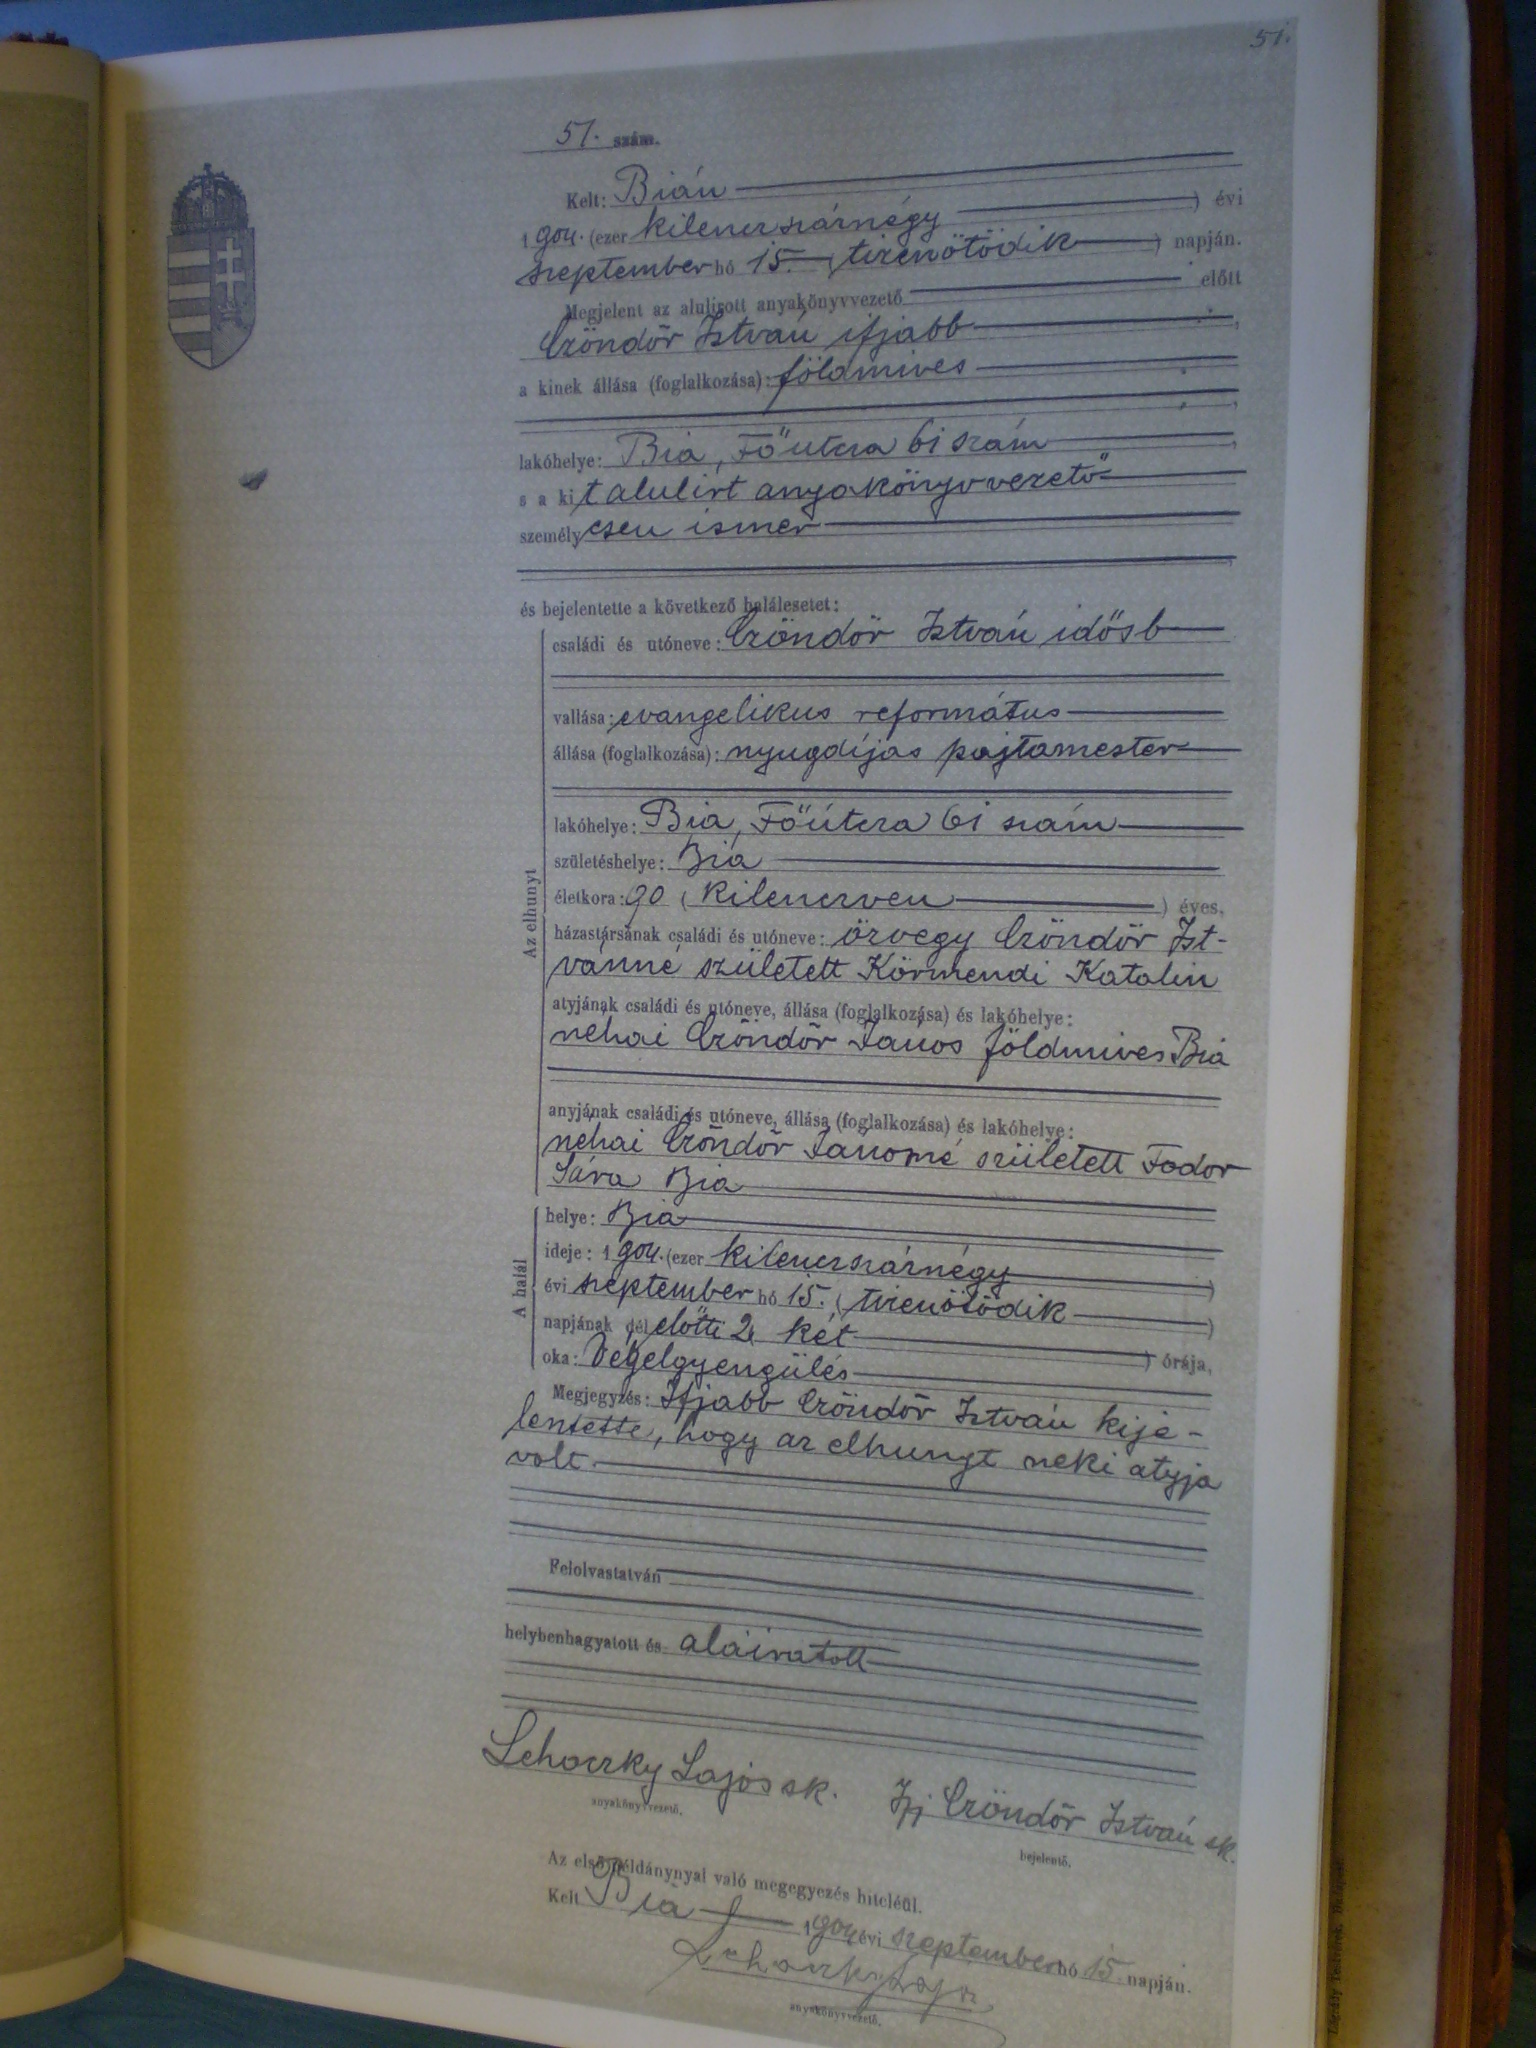 51.
51. szám.
Kelt: Bián
1904. (ezer kilenczszáznégy ) évi
szeptember hó 15. (tizenötödik ) napján.
Megjelent az alulirott anyakönyvvezető előtt
Czöndör István ifjabb
a kinek állása (foglalkozása): földmives
lakóhelye: Bia, Főutcza 61 szám
s a kit alulirt anyakönyvvezető
személyesen ismer
és bejelentette a következő halálesetet:
Az elhunyt
családi és utóneve: Czöndör István idősb
vallása: evangelikus református
állása (foglalkozása): nyugdíjas pajtamester
lakóhelye: Bia, Főútcza 61 szám
születéshelye: Bia
életkora: 90 (kilenczven ) éves,
házastársának családi és utóneve: özvegy Czöndör Ist-
vánné született Körmendi Katalin
atyjának családi és utóneve, állása (foglalkozása) és lakóhelye:
néhai Czöndör János földmives Bia
anyjának családi és utóneve, állása (foglalkozása) és lakóhelye:
néhai Czöndör Jánosné született Fodor
Sára Bia
A halál
helye: Bia
ideje: 1904. (ezer kilenczszáznégy )
évi szeptember hó 15. (tizenötödik )
napjának dél előtti 2 ( két ) órája,
oka: Végelgyengülés
Megjegyzés: Ifjabb Czöndör István kije-
lentette, hogy az elhunyt neki atyja
volt.
Felolvastatván
helybenhagyatott és aláiratott
Lehoczky Lajos sk. Ifj Czöndör István sk.
anyakönyvvezető. bejelentő.
Az első példánynyal való megegyezés hiteléül.
Kelt Bia 1904 évi szeptember hó 15 napján.
Lehoczky Lajos
anyakönyvvezető.